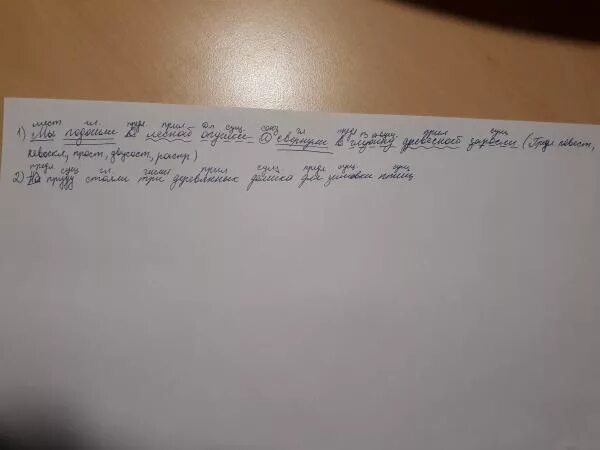 мест. гл. предл. прил. сущ. союз гл. предл. сущ. прил. сущ.
1) Мы подошли к лесной опушке и свернули в глубину древесной заросли (Предл. повест,
невоскл, прост, двусост, распр.)
предл сущ гл. числит прил сущ предл сущ. сущ
2) На пруду стояли три деревянных домика для зимовки птиц